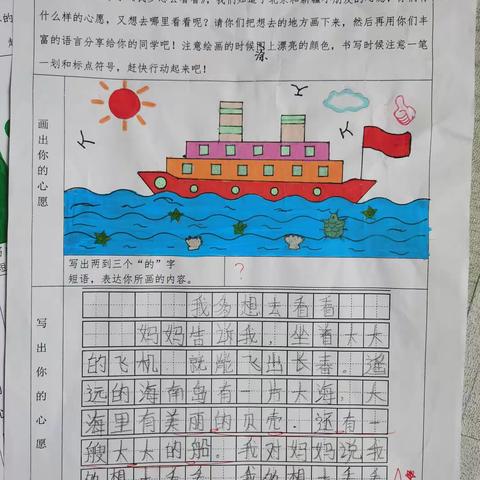 什么样的心愿，又想去哪里看看呢？请你们把想去的地方画下来，然后再用你们丰
富的语言分享给你的同学吧！注意绘画的时候图上漂亮的颜色，书写时候注意一笔
涂
一划和标点符号，赶快行动起来吧！
画出你的心愿
写出两到三个“的”字
短语，表达你所画的内容。
?
写出你的心愿
我多想去看看
妈妈告诉我，坐着大大
的飞机 就能飞出长春。遥
远的海南岛有一片大海，大
海里有美丽的贝壳。还有一
艘大大的船。我对妈妈说我